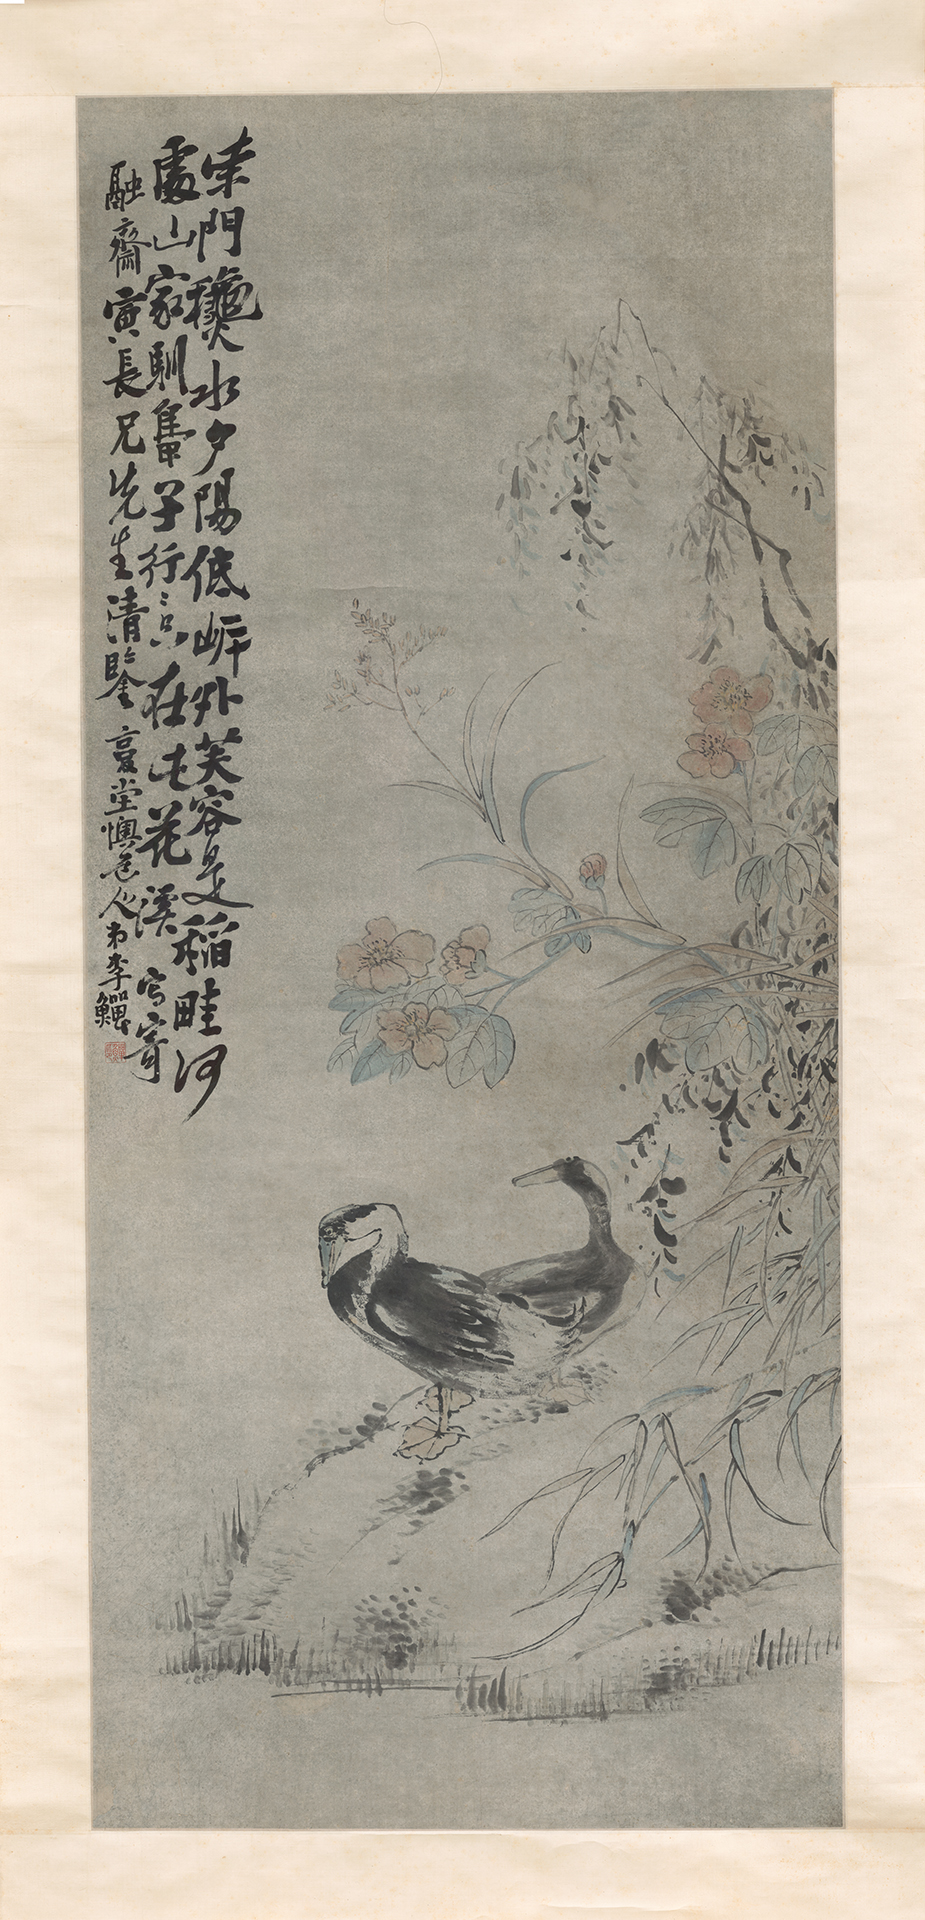 柴門穐水夕陽低岸外芙蓉是稻畦何
處山家馴隼子行〻只在七花溪 寫寄
融齋寅長兄先生清鑒 復堂懊道人弟李鱓